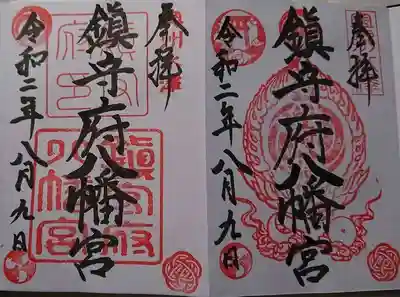 奉拝
鎮守府八幡宮
令和二年八月九日
奉拝
鎮守府八幡宮
令和二年八月九日